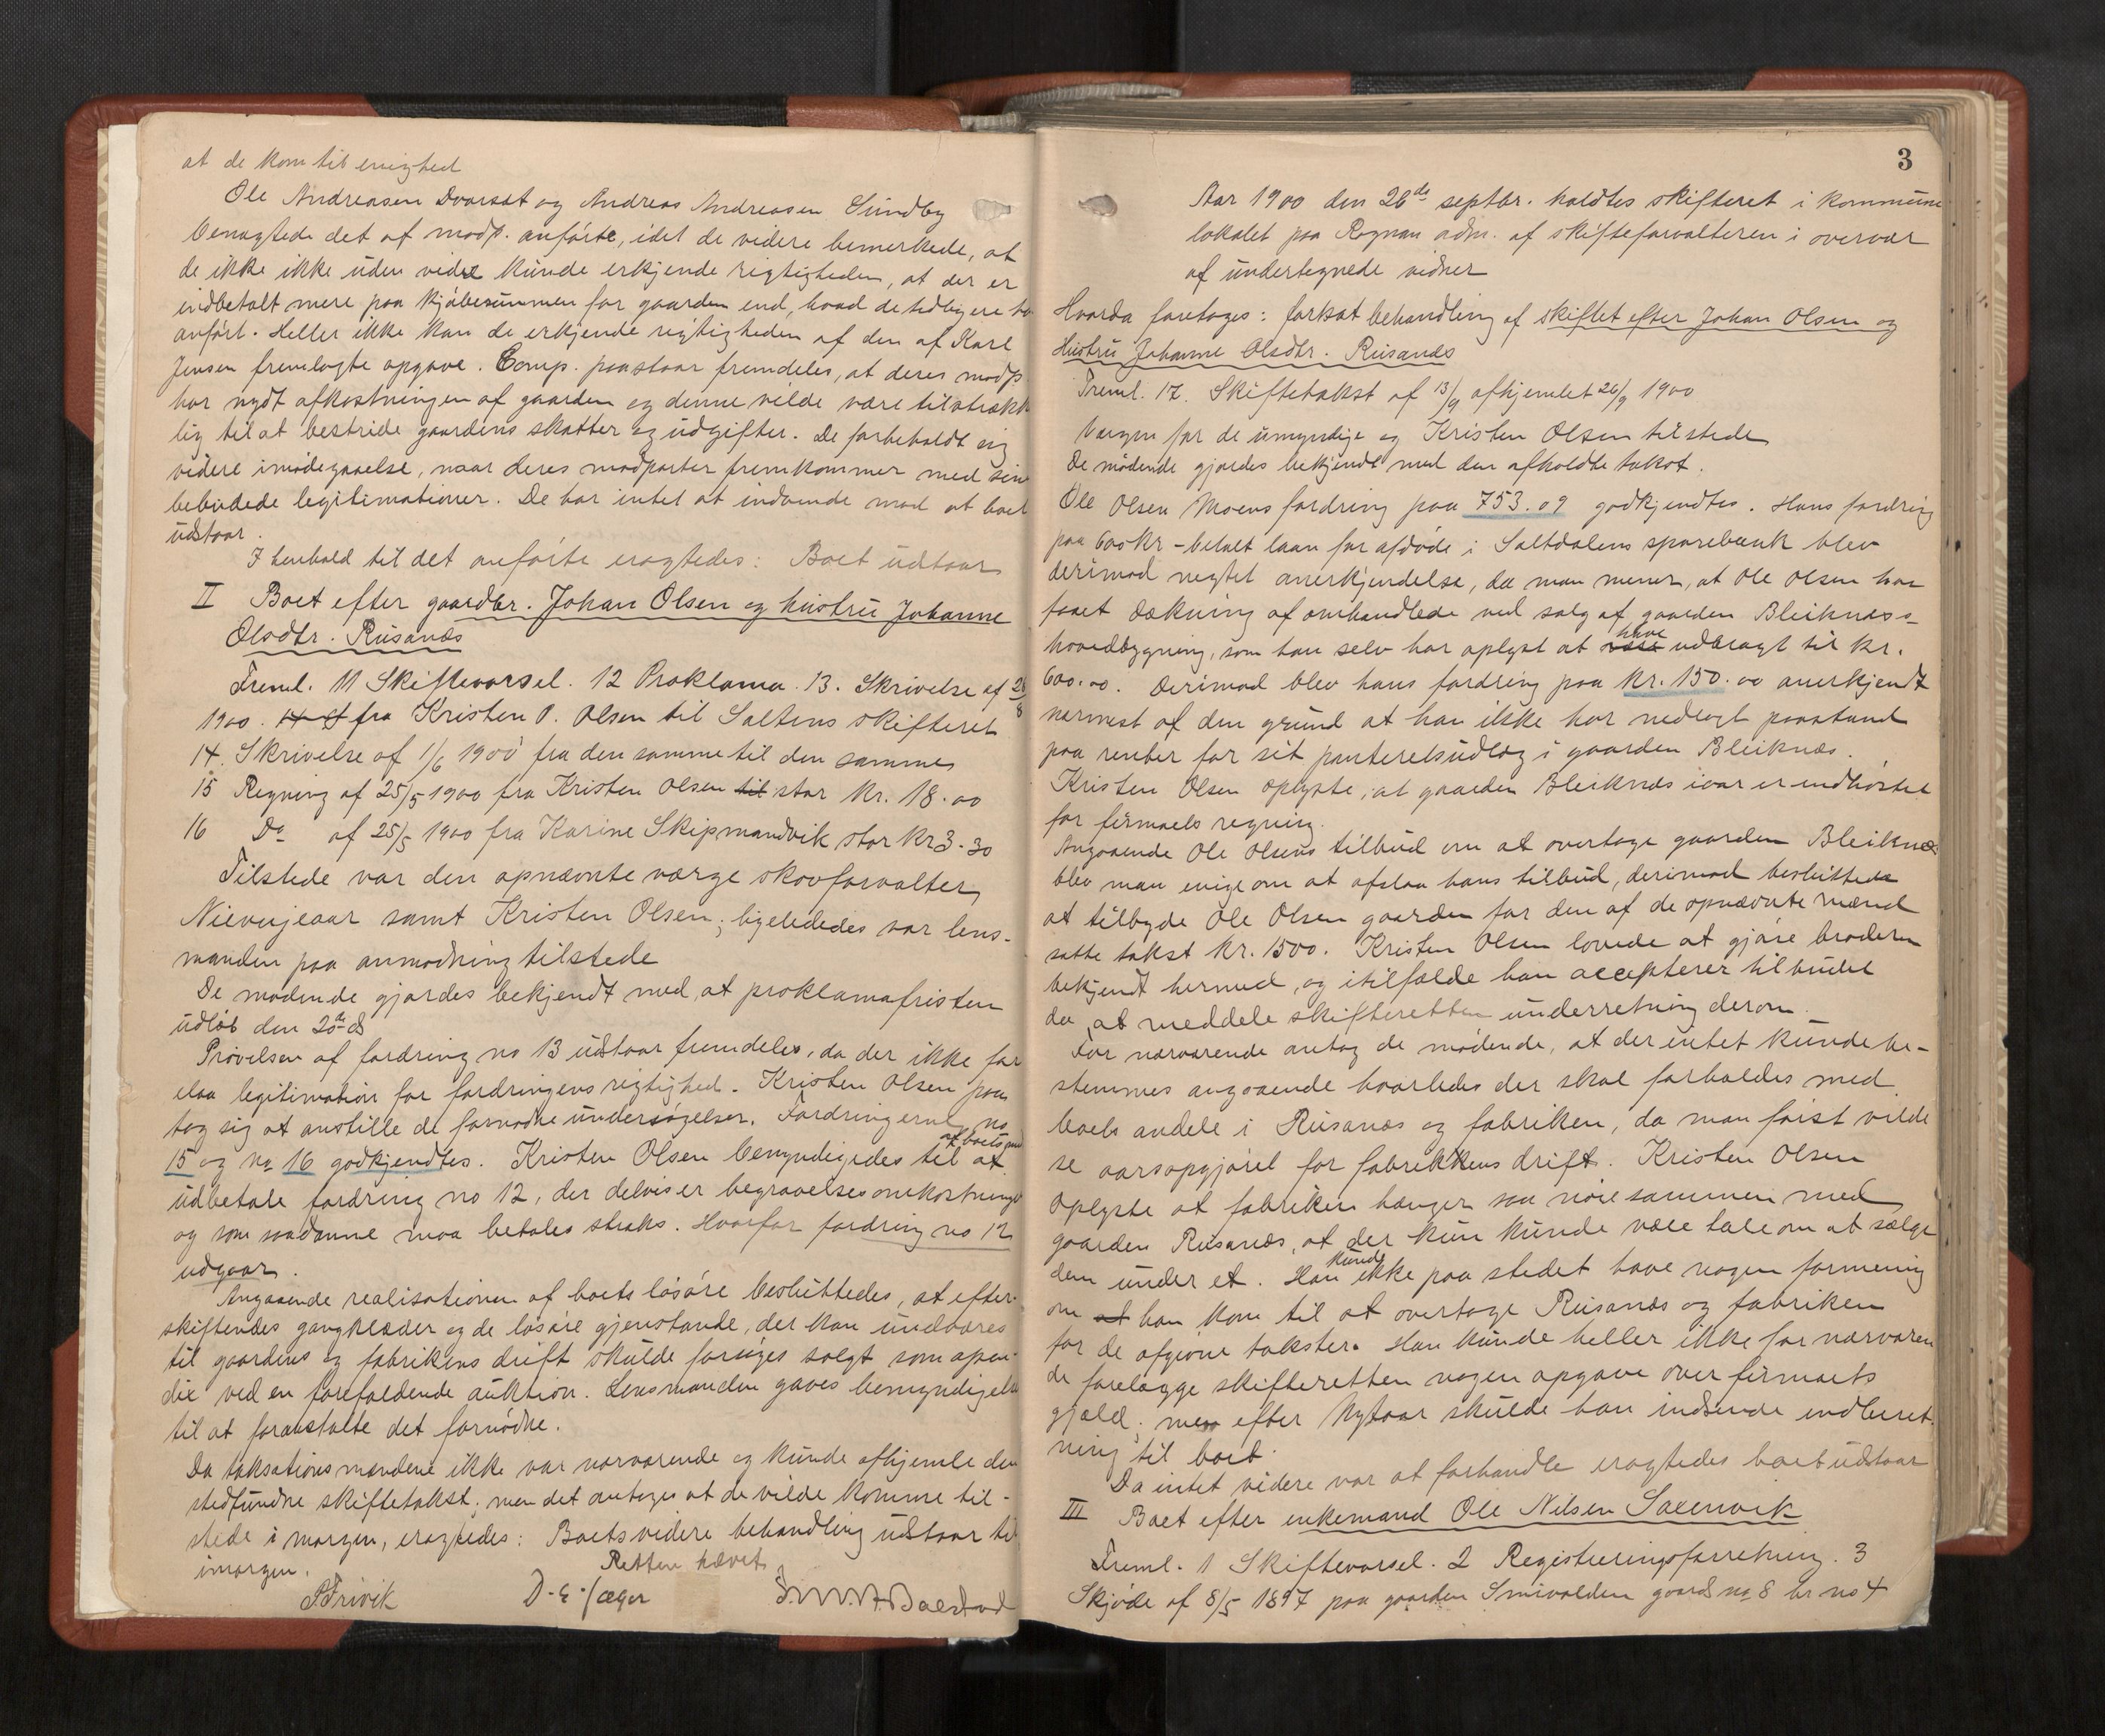 at de kom til enighed
Ole Andreasen Dvorset og Andreas Andreasen Sundby
benegtede det af modp. anførte, idet de videre bemerkede, at
de ikke ikke uden videre kunde erkjende rigtigheden, at der er
indbetalt mere paa kjøbesummen for gaarden end, hvad de tidligere
anført. Heller ikke kan de erkjende rigtigheden af den af Karl
Jensen fremlagte opgave. Comp. paastaar fremdeles, at deres modp.
har nydt afkastningen af gaarden og denne vilde være tilstrække
lig til at bestride gaardens skatter og udgifter. De forbeholdt sig
videre imødegaaelse, naar deres modparter fremkommer med sin
bebudede legitimationer. De har intet at indvende mod at boet
udstaar.
I henhold til det anførte eragtedes: Boet udstaar
II Boet efter gaardbr. Johan Olsen og hustru Johanne
Olsdtr. Rusanæs
Freml. 11 Skiftevarsel. 12 Proklama. 13. Skrivelse af 28/8
1900. fra Kristen O. Olsen til Saltens skifteret
14. Skrivelse af 1/6 1900 fra den samme til den samme
15 Regning af 25/5 1900 fra Kristen Olsen til stor kr. 18.00
16 Do af 25/5 1900 fra Karine Skipmandvik stor kr 3.30
Tilstede var den opnævnte værge skovforvalter
Nievujeaar samt Kristen Olsen; ligeledes var lens-
manden paa anmodning tilstede
De mødende gjordes bekjendt med, at proklamafristen
udløb den 20de ds
Prøvelsen af fordring no 13 udstaar fremdeles, da der ikke for
elaa legitimation for fordringens rigtighed. Kristen Olsen paa
tog sig at anstille de fornødne undersøgelser. Fordringerne no
15 og no 16 godkjendtes. Kristen Olsen bemyndigedes til at af boets
udbetale fordring no 12, der delvis er begravelsesomkostninger
og som saadanne maa betales straks. Hvorfor fordring no 12
udgaar.
Angaaende realisationen af boets løsøre besluttedes, at efter-
skiftendes gangklæder og de løsøre gjenstande, der kan undværes
til gaardens og fabrikens drift skulde forsøges solgt som apen-
dix ved en forefaldende auktion. Lensmanden gaves bemyndigelse
til at foranstalte det fornødne.
Da taksationsmændene ikke var nærværende og kunde afhjemle den
stedfundne skiftetakst; men det antoges at de vilde komme til-
stede i morgen, eragtedes: Boets videre behandling udstaar til
imorgen.
Retten hævet
D. E. Jæger
3
Aar 1900 den 26de septbr. holdtes skifteret i kommune
lokalet paa Rognan adm. af skifteforvalteren i overvær
af undertegnede vidner
Hvorda foretoges: fortsat behandling af skiftet efter Johan Olsen og
Hustru Johanne Olsdtr. Rusanæs
Freml. 17. Skiftetakst af 13/9 afhjemlet 26/9 1900
Værgen for de umyndige og Kristen Olsen tilstede
De mødende gjordes bekjendt med den afholdte takst.
Ole Olsen Moens fordring paa 753.09 godkjendtes. Hans fordring
paa 600 kr - betalt laan for afdøde i Saltdalens sparebank blev
derimod negtet anerkjendelse, da man mener, at Ole Olsen har
faaet dækning af omhandlede ved salg af gaarden Bleiknes's
hovedbygning, som han selv har oplyst at have udbragt til kr.
600.00. Derimod blev hans fordring paa kr. 150.00 anerkjendt
nærmest af den grund at han ikke har nedlagt paastand
paa renter for sit panteretsudlæg i gaarden Bleiknæs.
Kristen Olsen oplyste, at gaarden Bleiknæs iaar er indhøstet
for firmaets regning.
Angaaende Ole Olsens tilbud om at overtage gaarden Bleiknæs
blev man enige om at afslaa hans tilbud, derimod besluttede
at tilbyde Ole Olsen gaarden for den af de opnævnte mænd
satte takst kr. 1500. Kristen Olsen lovede at gjøre broderen
bekjendt hermed, og i tilfælde han accepterer tilbudet
da at meddele skifteretten underretning derom.
For nærværende antog de mødende, at der intet kunde be-
stemmes angaaende hvorledes der skal forholdes med
boets andele i Rusanæs og fabriken, da man først vilde
se aarsopgjøret for fabrikkens drift. Kristen Olsen
oplyste at fabriken hænger saa nøie sammen med
gaarden Rusanæs, at der kun kunde være tale om at sælge
dem under et. Han kunde ikke paa stedet have nogen formening
om at han kom til at overtage Rusanæs og fabriken
for de afgivne takster. Han kunde heller ikke for nærværen
de forelægge skifteretten nogen opgave over firmaets
gjæld; men efter Nytaar skulde han indsende indberet-
ning til boet.
Da intet videre var at forhandle eragtedes boet udstaar
III Boet efter enkemand Ole Nilsen Saxenvik
Freml. 1 Skiftevarsel. 2 Registreringsforretning. 3
Skjøde af 8/5 1897 paa gaarden Smivolden gaards no 8 br no 4